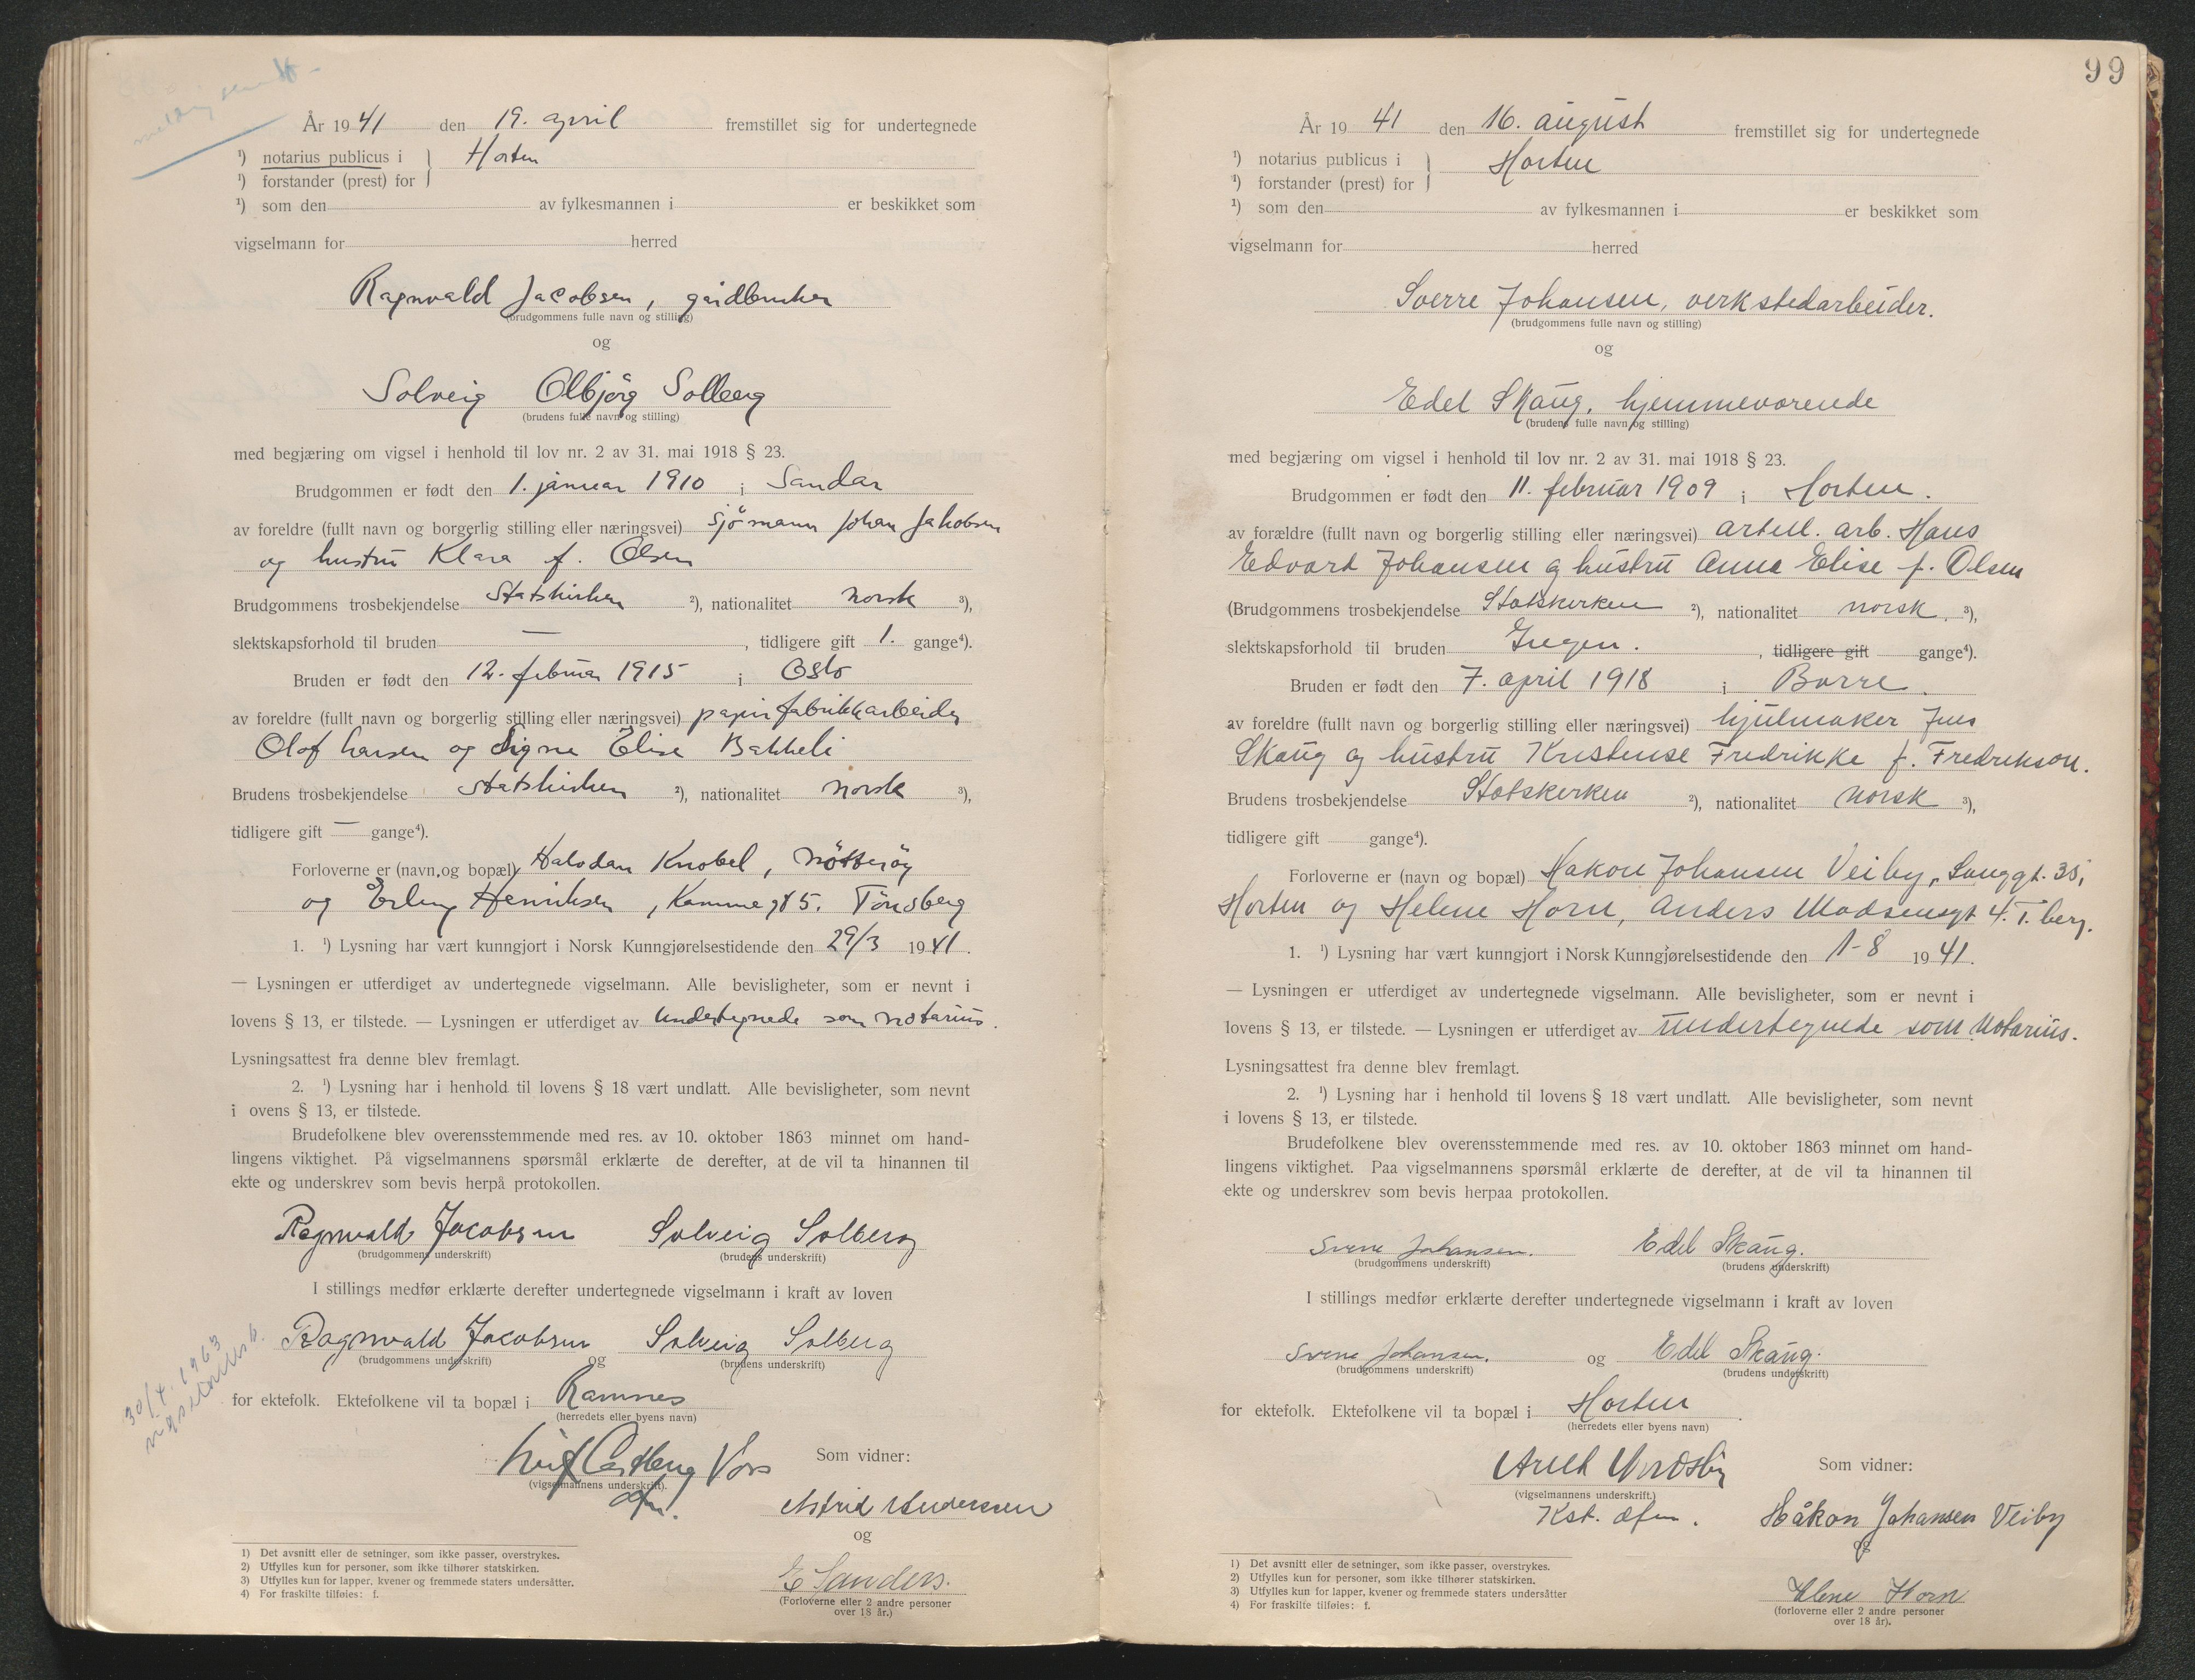 melding sendt
År 1941 den 19. april fremstillet sig for undertegnede
¹) notarius publicus i } Horten
¹) forstander (prest) for
¹) som den av fylkesmannen i er beskikket som
vigselmann for herred
Ragnvald Jacobsen, gårdbruker
(brudgommens fulle navn og stilling)
og
Solveig Olbjörg Solberg
(brudens fulle navn og stilling)
med begjæring om vigsel i henhold til lov nr. 2 av 31. mai 1918 § 23.
Brudgommen er født den 1. januar 1910 i Sandar
av foreldre (fullt navn og borgerlig stilling eller næringsvei) sjömann Johan Jakobsen
og hustru Klara f. Olsen
Brudgommens trosbekjendelse Statskirken ²), nationalitet norsk ³),
slektskapsforhold til bruden — , tidligere gift 1. gange⁴).
Bruden er født den 12. februar 1915 i Oslo
av foreldre (fullt navn og borgerlig stilling eller næringsvei) papirfabrikkarbeider
Olof Larsen og Signe Elise Bakkeli
Brudens trosbekjendelse Statskirken ²), nationalitet norsk ³),
tidligere gift — gange⁴).
Forloverne er (navn og bopæl) Halvdan Knobel, Nötteröy
og Erling Henriksen, Kammegt 5. Tönsberg
1. ¹) Lysning har vært kunngjort i Norsk Kunngjørelsestidende den 29/3 1941.
— Lysningen er utferdiget av undertegnede vigselmann. Alle bevisligheter, som er nevnt i
lovens § 13, er tilstede. — Lysningen er utferdiget av undertegnede som notarius.
Lysningsattest fra denne blev fremlagt.
2. ¹) Lysning har i henhold til lovens § 18 vært undlatt. Alle bevisligheter, som nevnt
i ovens § 13, er tilstede.
Brudefolkene blev overensstemmende med res. av 10. oktober 1863 minnet om hand-
lingens viktighet. På vigselmannens spørsmål erklærte de derefter, at de vil ta hinannen til
ekte og underskrev som bevis herpå protokollen.
Ragnvald Jacobsen Solveig Solberg
(brudgommens underskrift) (brudens underskrift)
I stillings medfør erklærte derefter undertegnede vigselmann i kraft av loven
Ragnvald Jacobsen og Solveig Solberg
(brudgommens underskrift) (brudens underskrift)
30/4.1963
for ektefolk. Ektefolkene vil ta bopæl i Ramnes
(herredets eller byens navn)
Som vidner:
(vigselmannens underskrift).
Astrid Anderssen
og
E Sanders.
(Forloverne eller 2 andre personer
over 18 år.)
1) Det avsnitt eller de setninger, som ikke passer, overstrykes.
2) Utfylles kun for personer, som ikke tilhører statskirken.
3) Utfylles kun for lapper, kvener og fremmede staters undersåtter.
4) For fraskilte tilføies: f.
99
År 1941 den 16. august fremstillet sig for undertegnede
¹) notarius publicus i } Horten
¹) forstander (prest) for
¹) som den av fylkesmannen i er beskikket som
vigselmann for herred
Sverre Johansen, verkstedarbeider.
(brudgommens fulle navn og stilling)
og
Edel Skaug, hjemmeværende
(brudens fulle navn og stilling)
med begjæring om vigsel i henhold til lov nr. 2 av 31. mai 1918 § 23.
Brudgommen er født den 11. februar 1909 i Horten.
av forældre (fullt navn og borgerlig stilling eller næringsvei) artill. arb. Hans
Edvard Johansen og hustru Anna Elise f. Olsen
(Brudgommens trosbekjendelse Statskirken ²), nationalitet norsk. ³),
slektskapsforhold til bruden Ingen. , tidligere gift gange⁴).
Bruden er født den 7. april 1918 i Borre.
av foreldre (fullt navn og borgerlig stilling eller næringsvei) hjulmaker Jens
Skaug og hustru Kristense Fredrikke f. Fredrikson.
Brudens trosbekjendelse Statskirken ²), nationalitet norsk ³),
tidligere gift gange⁴).
Forloverne er (navn og bopæl) Håkon Johansen Veiby, Langgt. 35,
Horten og Helene Horn, Anders Madsensgt 4. T.berg.
1. ¹) Lysning har vært kunngjort i Norsk Kunngjørelsestidende den 1-8 1941.
— Lysningen er utferdiget av undertegnede vigselmann. Alle bevisligheter, som er nevnt i
lovens § 13, er tilstede. — Lysningen er utferdiget av undertegnede som Notarius.
Lysningsattest fra denne blev fremlagt.
2. ¹) Lysning har i henhold til lovens § 18 vært undlatt. Alle bevisligheter, som nevnt
i lovens § 13, er tilstede.
Brudefolkene blev overensstemmende med res. av 10. oktober 1863 minnet om hand-
lingens viktighet. Paa vigselmannens spørsmål erklærte de derefter, at de vil ta hinannen til
ekte og underskrev som bevis herpaa protokollen.
Sverre Johansen. Edel Skaug.
(brudgommens underskrift) (brudens underskrift)
I stillings medfør erklærte derefter undertegnede vigselmann i kraft av loven
Sverre Johansen. og Edel Skaug.
(brudgommens underskrift) (brudens underskrift)
for ektefolk. Ektefolkene vil ta bopæl i Horten
(herredets eller byens navn)
Som vidner:
(vigselmannens underskrift.)
Kst. dfm.
Håkon Johansen Veiby
og
Helene Horn
(forloverne eller 2 andre personer
over 18 år).
1) Det avsnitt eller de setninger, som ikke passer, overstrykes.
2) Utfylles kun for personer, som ikke tilhører statskirken.
3) Utfylles kun for lapper, kvener og fremmede staters undersåtter
4) For fraskilte tilføies: f.